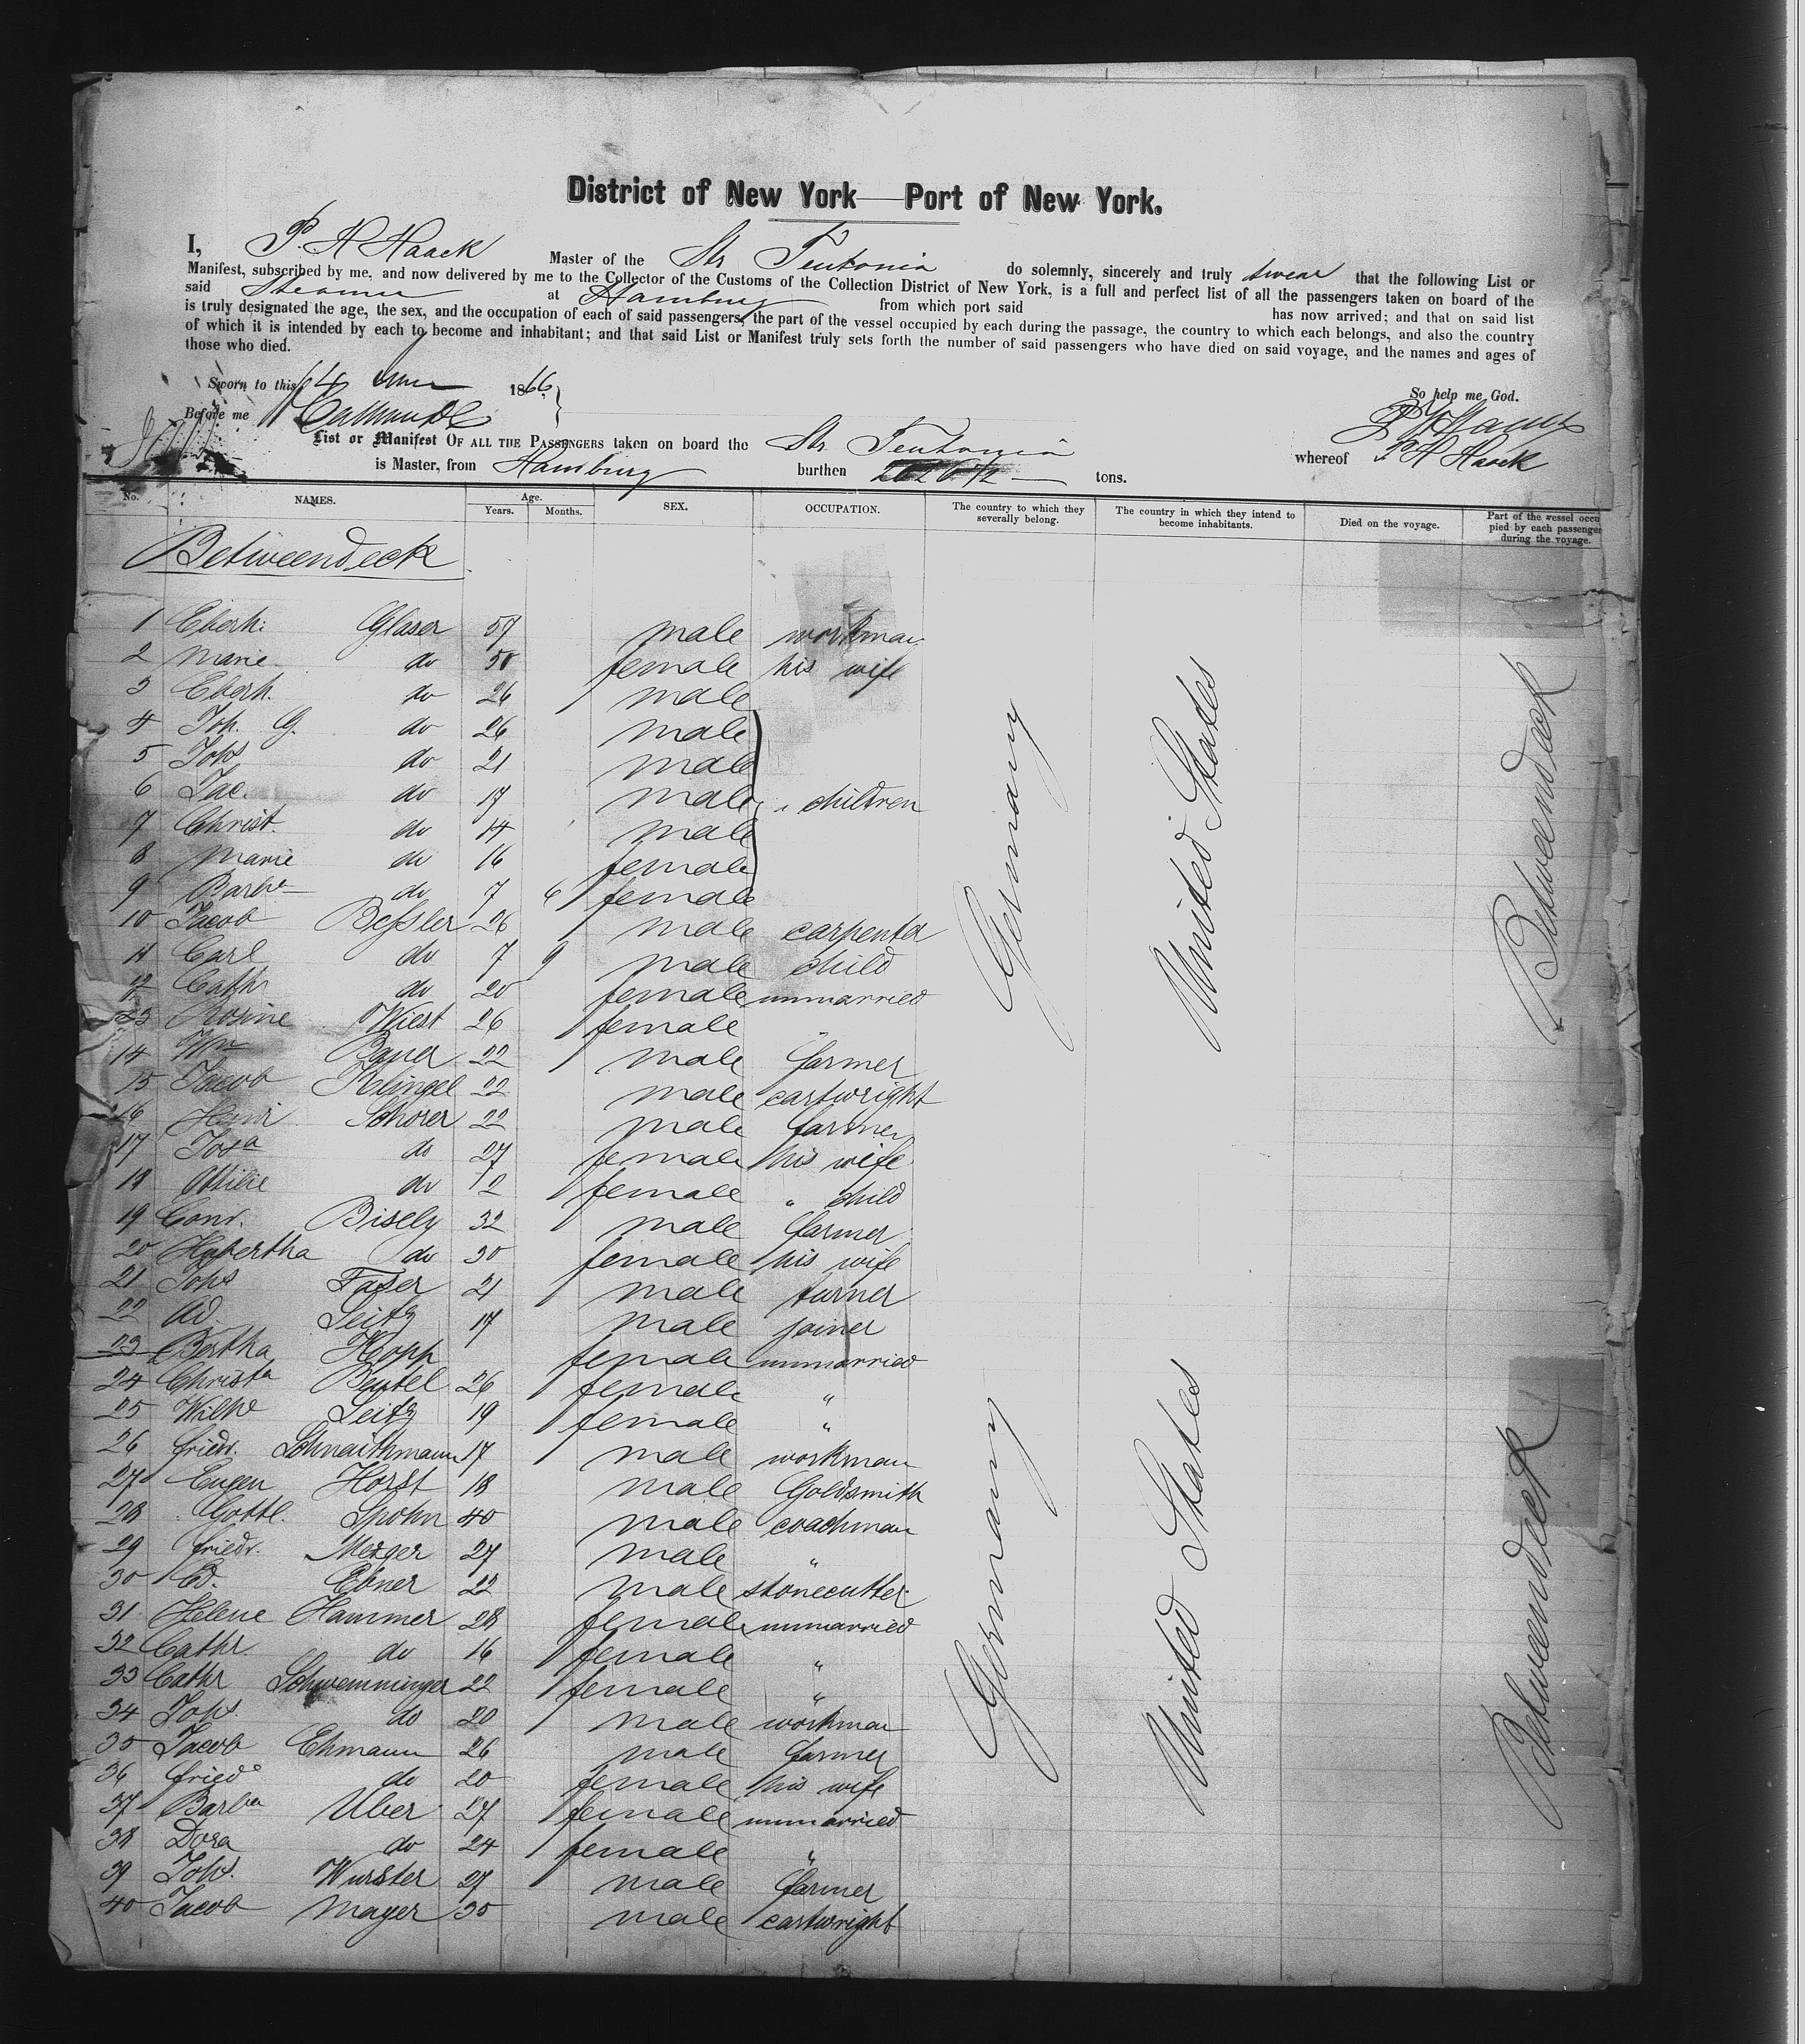 District of New York—Port of New York.
I, P. H Haack Master of the Str Teutonia do solemnly, sincerely and truly swear that the following List or
Manifest, subscribed by me, and now delivered by me to the Collector of the Customs of the Collection District of New York, is a full and perfect list of all the passengers taken on board of the
said Steamer at Hamburg from which port said has now arrived; and that on said list
is truly designated the age, the sex, and the occupation of each of said passengers, the part of the vessel occupied by each during the passage, the country to which each belongs, and also the country
of which it is intended by each to become and inhabitant; and that said List or Manifest truly sets forth the number of said passengers who have died on said voyage, and the names and ages of
those who died.
Sworn to this 4 1866
So help me God.
Before me
List or Manifest OF ALL THE PASSENGERS taken on board the Str Teutonia whereof P H Haack
is Master, from Hamburg burthen tons.
No. NAMES. Age. Years. Months. SEX. OCCUPATION. The country to which they severally belong. The country in which they intend to become inhabitants. Died on the voyage. Part of the vessel occu pied by each passenger during the voyage.
Betweendeck
1 Eberh: Glaser 57 male workman
2 Marie do 50 female his wife
3 Eberh. do 26 male
4 Joh. G. do 26 male
5 Johs do 21 male
6 Jac. do 17 male " children
7 Christ. do 14 male
8 Marie do 16 female
9 Barba do 7 6 female
10 Jacob Bessler 26 male carpenter
11 Carl do 7 9 male child
12 Cathr do 20 female unmarried
13 Rosine Wiest 26 female "
14 Wm Bauer 22 male farmer
15 Jacob Klingel 22 male cartwright
16 Heinr Schorer 22 male farmer
17 Josa do 27 female his wife
18 Ottilie do 2 female " child
19 Conr. Bisely 32 male farmer
20 Hubertha do 30 female his wife
21 Johs Faser 21 male turner
22 Ad. Seitz 17 male joiner
23 Bertha Hopp female unmarried
24 Christa Beutel 26 female "
25 Wilhe Seitz 19 female "
26 Friedr. Schnaithmann 17 male workman
27 Eugen Horst 18 male Goldsmith
28 Gottl. Spohn 40 male coachman
29 Friedr. Mezger 27 male "
30 Ed. Ebner 22 male stonecutter
31 Helene Hammer 28 female unmarried
32 Cathr. do 16 female "
33 Cathr Schwemminger 22 female "
34 Johs. do 20 male workman
35 Jacob Ehmann 26 male farmer
36 Friede do 20 female his wife
37 Barba Uber 27 female unmarried
38 Dora do 24 female "
39 Johs. Wurster 27 male farmer
40 Jacob Mayer 30 male cartwright
Germany
United States
Betweendeck
Germany
United States
Betweendeck